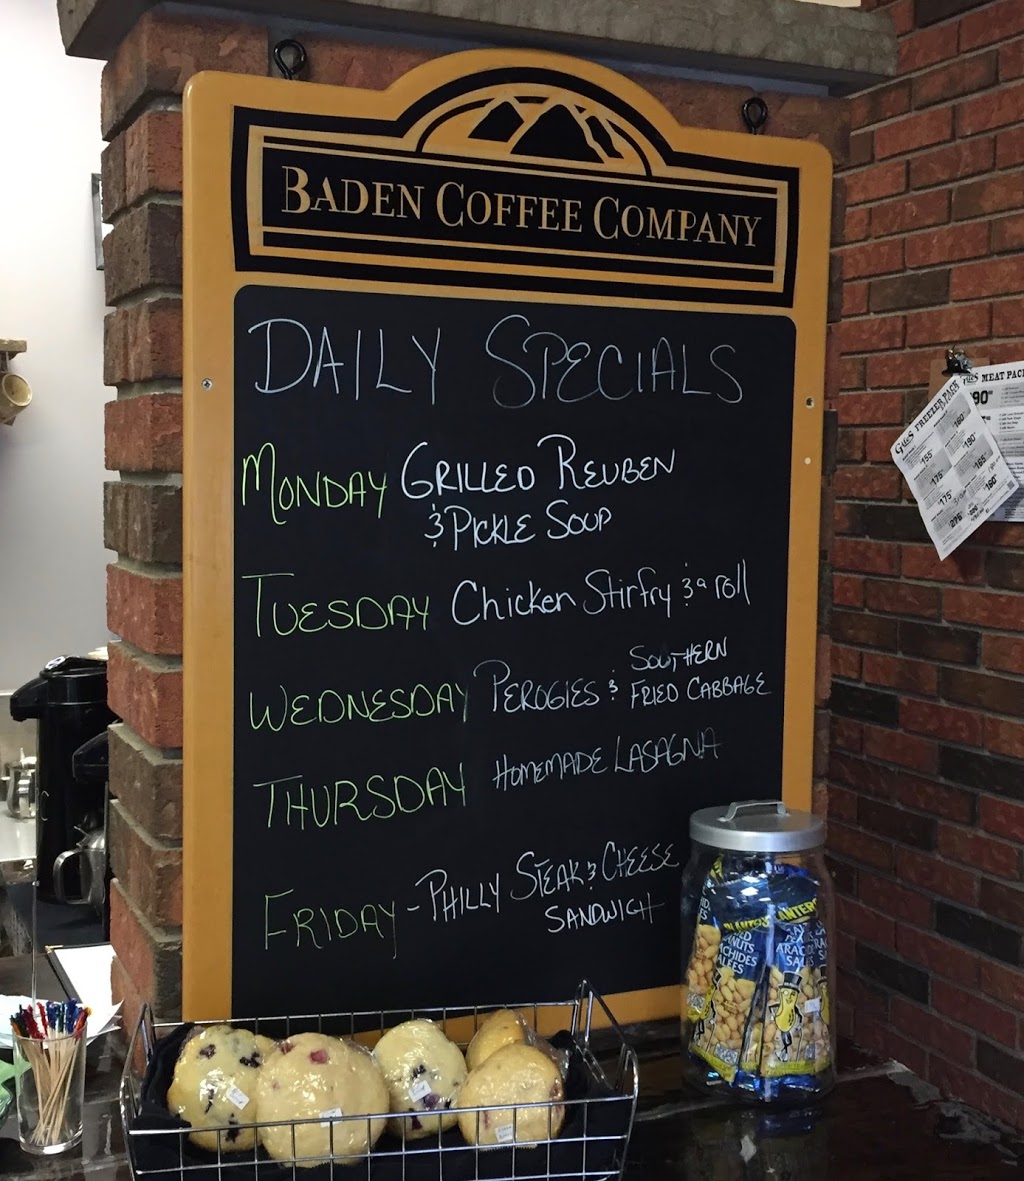 BADEN COFFEE COMPANY
DAILY SPECIALS
MONDAY GRILLED REUBEN
& PICKLE SOUP
TUESDAY Chicken Stirfry & a roll
WEDNESDAY PEROGIES & SOUTHERN
FRIED CABBAGE
THURSDAY HOMEMADE LASAGNA
FRIDAY - PHILLY STEAK & CHEESE
SANDWICH
MEAT PACK
90
FREEZER PACK
PLANTERS